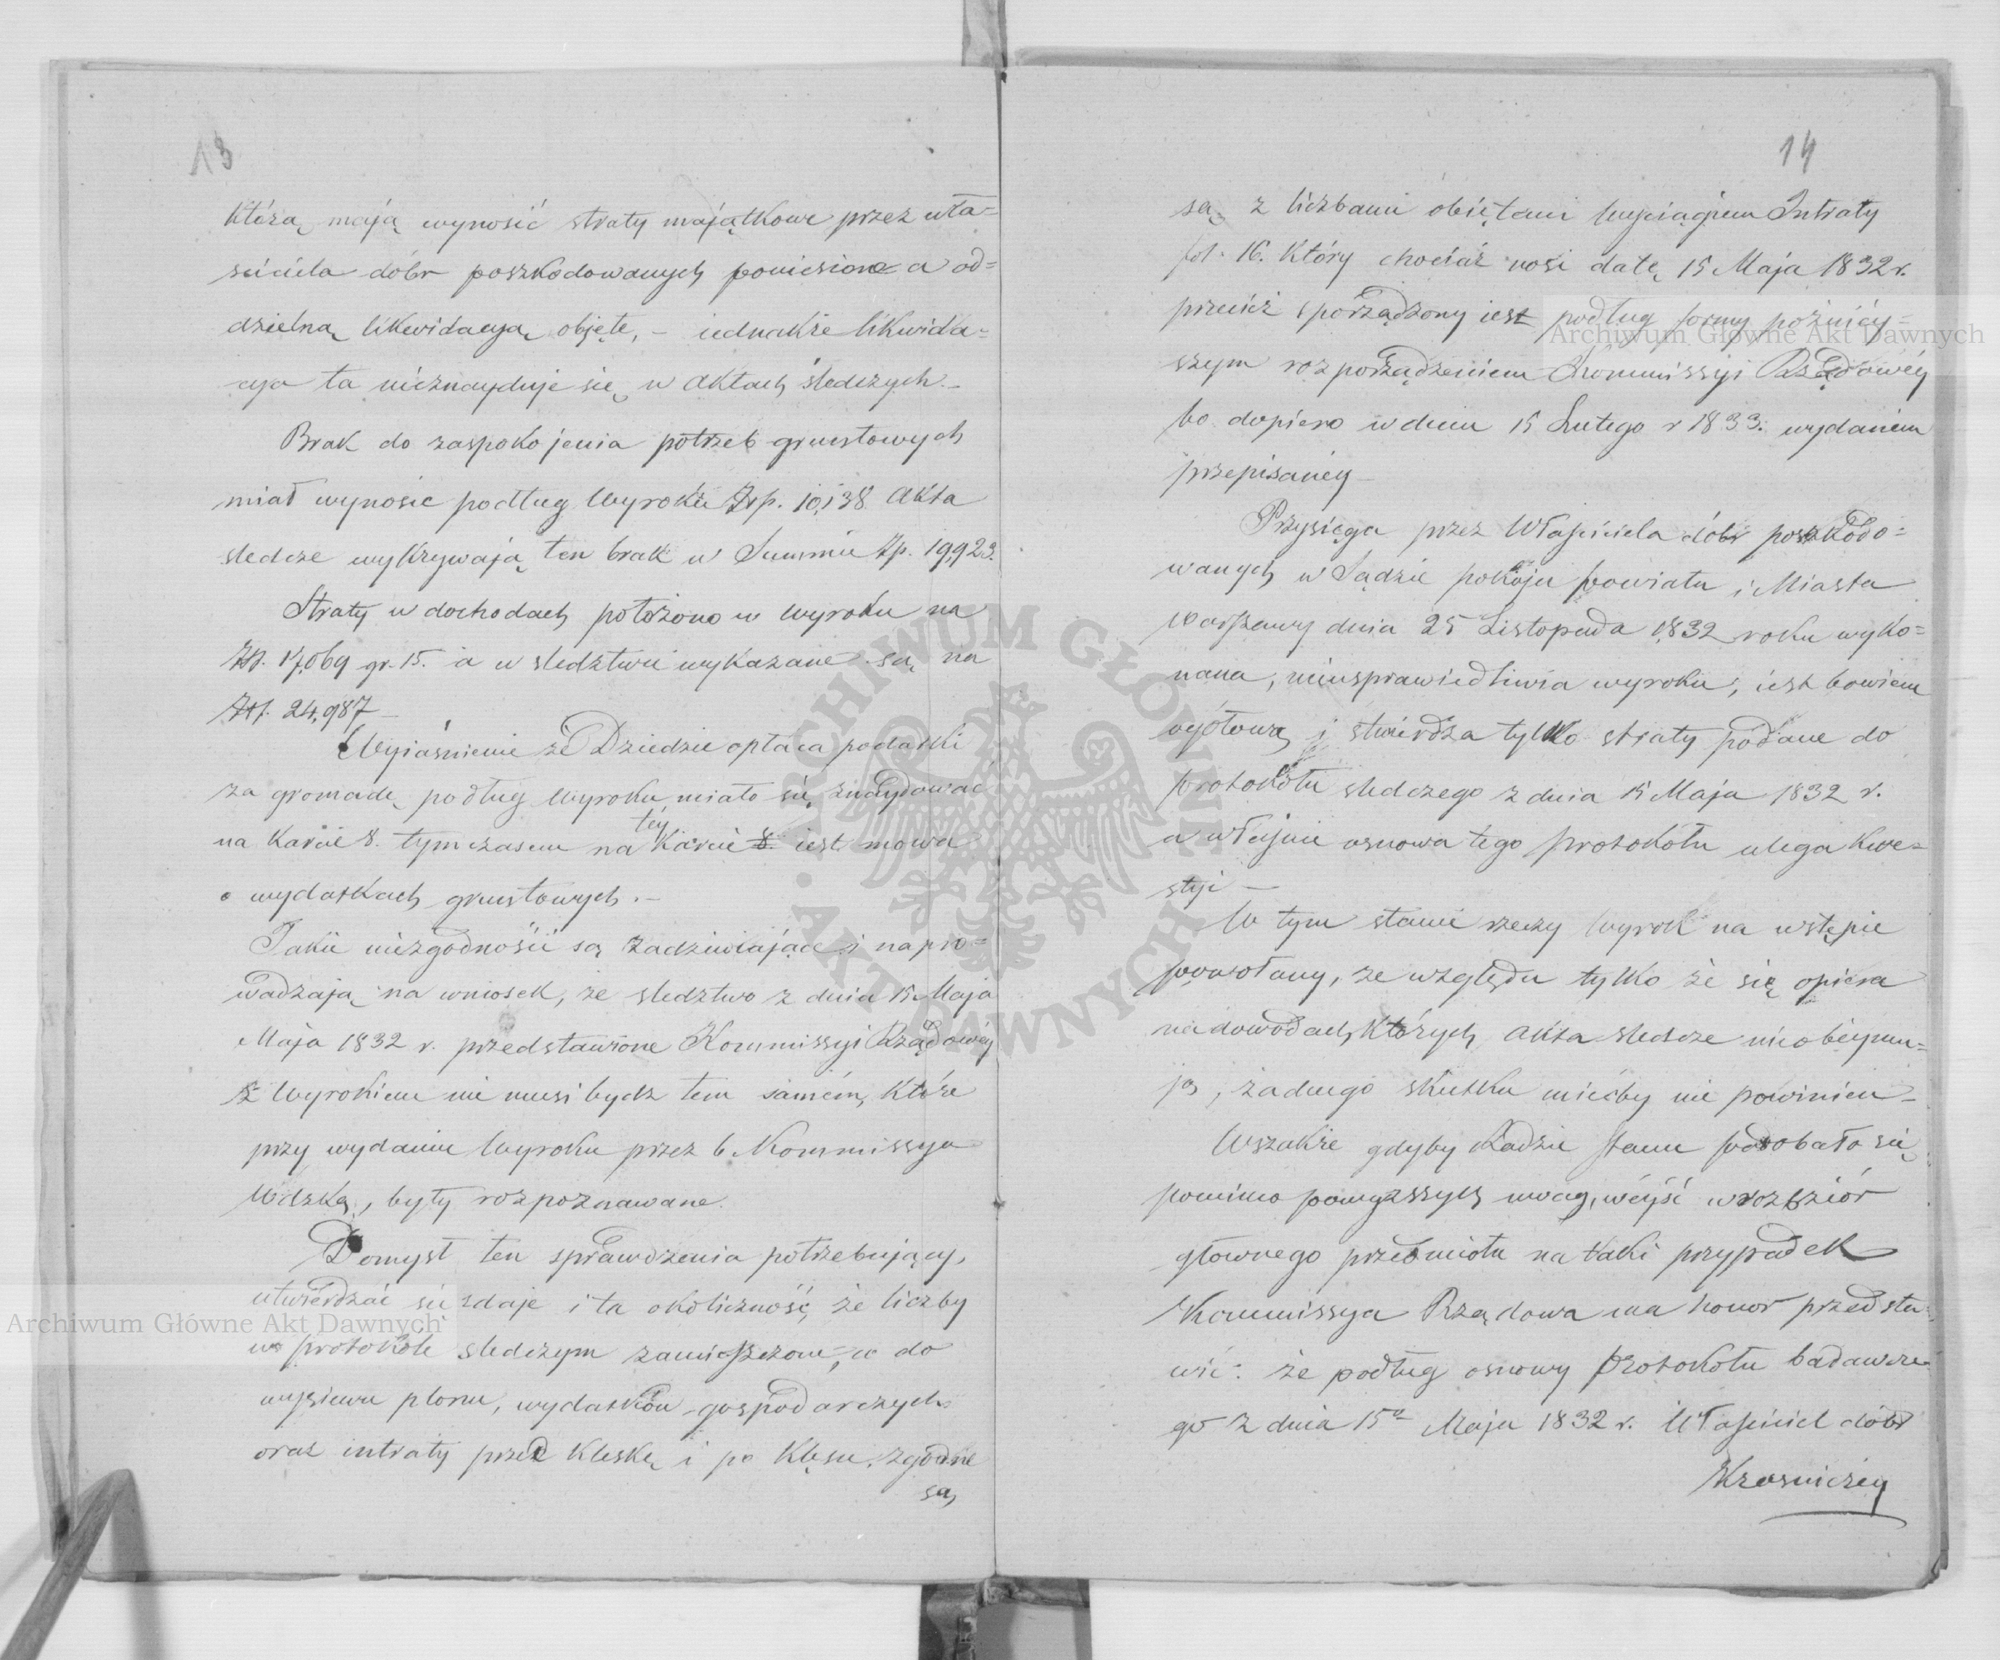 13
którą mają wynosić straty majątkowe przez wła=
ściciela dóbr poszkodowanych poniesione a od=
dzielną likwidacyą objęte, – iednakże likwida=
cya ta nieznayduje się w aktach śledczych. –
Brak do zaspokojenia potrzeb gruntowych
miał wynosić podług Wyroku Złp. 10,138 Akta
śledcze wykrywają ten brak w Summie Zp. 19,923.
Straty w dochodach położono w wyroku na
Złp. 17,069 gr. 15. a w śledztwie wykazane są na
Złp. 24,987 –
Wyiaśnienie że Dziedzic opłaca podatki
za gromadę podług Wyroku miało się znaydować
na karcie 8. tymczasem na tey karcie 8. iest mowa
o wydatkach gruntowych. –
Takie niezgodności są zadziwiające i napro=
wadzają na wniosek, że śledztwo z dnia 15 Maja
Maja 1832 r. przedstawione Kommissyi Rządowéy
z Wyrokiem nie musi bydź tem samém, które
przy wydaniu Wyroku przez b. Kommissyą
Wdzką, były rozpoznawane.
Domysł ten sprawdzenia potrzebujący,
utwierdzać się zdaje i ta okoliczność, że liczby
w protokóle śledczym zamieszczone, co do
wysiewu plonu, wydatków gospodarczych
oraz intraty przed klęską i po klęsce, zgodne
są
14
są z liczbami obiętemi Wyciągiem Intraty
fol. 16. który chociaż nosi datę 15 Maja 1832 r.
przecież sporządzony iest podług formy późniéy=
szym rozporządzeniem Kommissyi Rządowéy
bo dopiero w dniu 15 Lutego r 1833. wydanem
przepisanéy –
Przysięga przez Właściciela dóbr poszkodo=
wanych w Sądzie pokoju powiatu i Miasta
Warszawy dnia 25 Listopada 1832 roku wyko=
nana, nieusprawiedliwia wyroku, iest bowiem
ogółową i stwierdza tylko straty podane do
protokółu śledczego z dnia 15 Maja 1832 r.
a właśnie osnowa tego protokółu ulega kwe=
styi –
W tym stanie rzeczy Wyrok na wstępie
powołany, ze względu tylko że się opiera
na dowodach których Akta śledcze nieobeymu=
ją, żadnego skutku miećby nie powinien –
Wszakże gdyby Radzie Stanu podobało się
pomimo powyższych uwag, wéyść w rozbiór
głównego przedmiotu na taki przypadek
Kommissya Rządowa ma honor przedsta=
wić: że podług osnowy protokółu badawcze=
go z dnia 15º Maja 1832 r. Właściciel dóbr
Krośniczéy
Archiwum Główne Akt Dawnych
Archiwum Główne Akt Dawnych
ARCHIWUM GŁÓWNE · AKT DAWNYCH ·